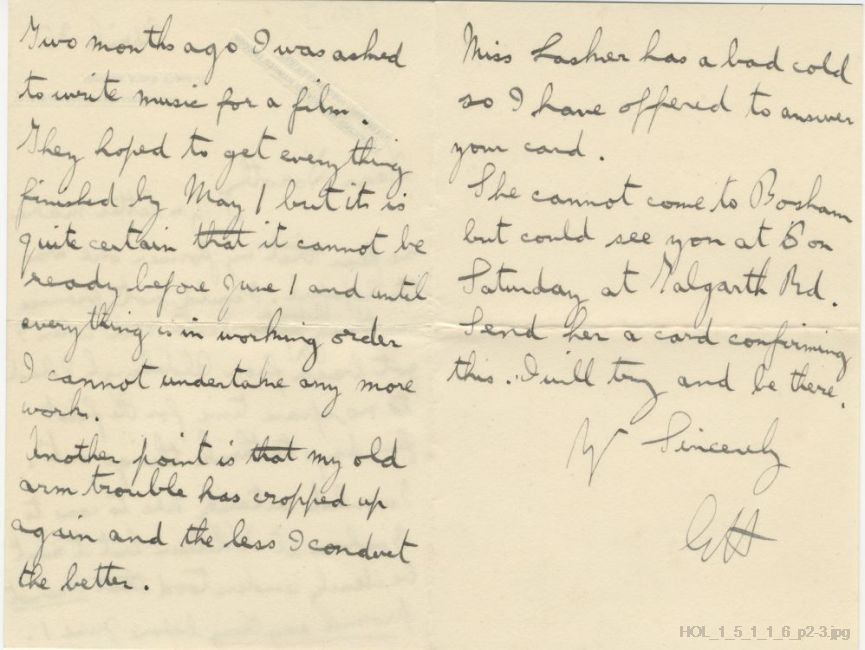 Two months ago I was asked
to write music for a film.
They hoped to get everything
finished by May 1 but it is
quite certain that it cannot be
ready before June 1 and until
everything is in working order
I cannot undertake any more
work.
Another point is that my old
arm trouble has cropped up
again and the less I conduct
the better.
Miss Lasker has a bad cold
so I have offered to answer
your card.
She cannot come to Bosham
but could see you at 6 on
Saturday at Talgarth Rd.
Send her a card confirming
this. I will try and be there.
Yr Sincerely
GH
HOL_1_5_1_1_6_p2-3.jpg